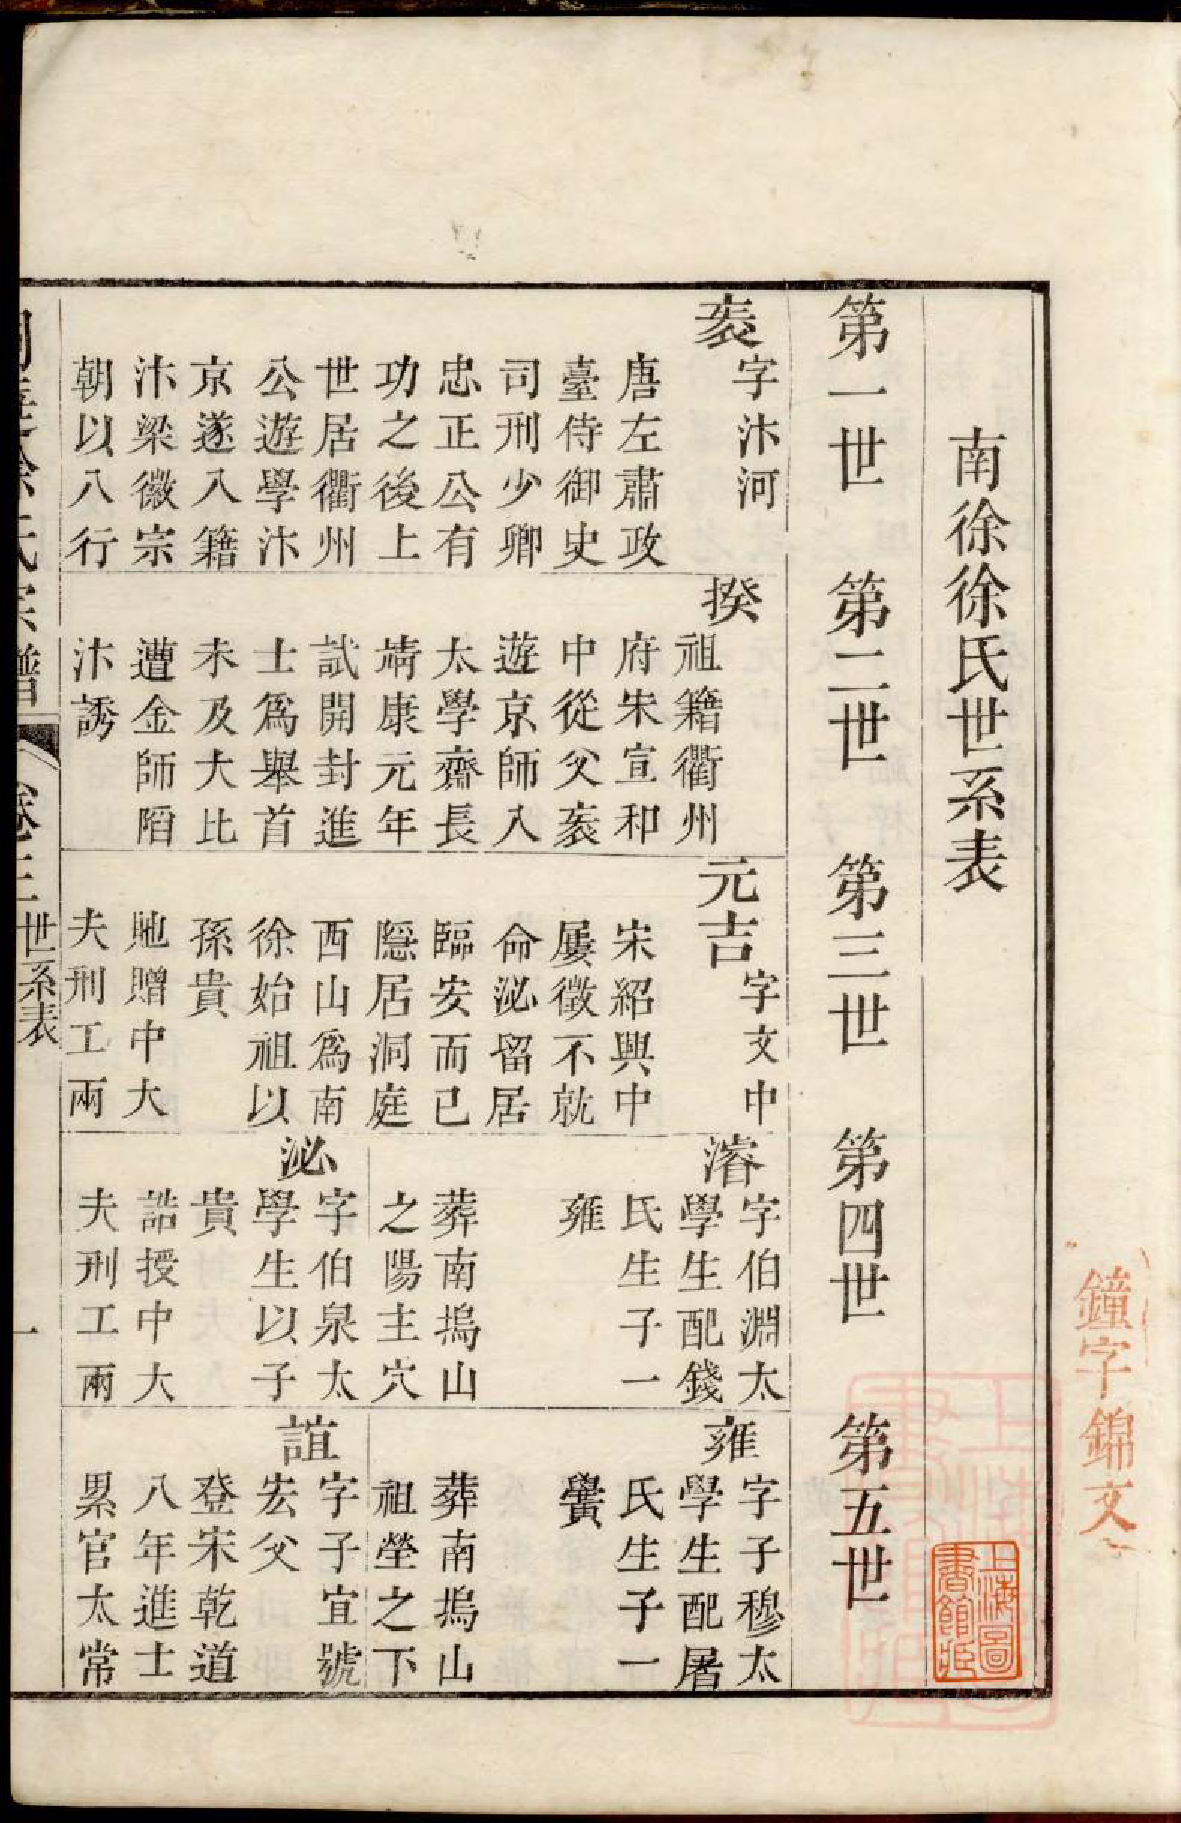 南徐徐氏世系表
第一世
第二世
第三世
第四世
第五世
袤
字汴河
唐左肅政
臺侍御史
司刑少卿
忠正公有
功之後上
世居衢州
公遊學汴
京遂入籍
汴梁徽宗
朝以八行
揆
祖籍衢州
府宋宣和
中從父袤
遊京師入
太學齋長
靖康元年
試開封進
士爲舉首
未及大比
遭金師陷
汴誘
元吉
字文中
宋紹興中
屢徵不就
命泌留居
臨安而己
隱居洞庭
西山爲南
徐始祖以
孫貴
貤贈中大
夫刑工兩
濬
字伯淵太
學生配錢
氏生子一
雍
葬南塢山
之陽主穴
泌
字伯泉太
學生以子
貴
誥授中大
夫刑工兩
雍
字子穆太
學生配屠
氏生子一
黌
葬南塢山
祖塋之下
誼
字子宜號
宏父
登宋乾道
八年進士
累官太常
氏宗譜
卷三
世系表
一
鐘字錦文
上海圖
書館藏